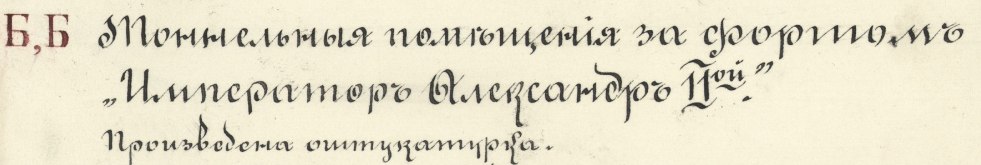 Б,Б Тоннельныя помѣщенія за фортомъ
„Императоръ Александръ IIой”
Произведена оштукатурка.